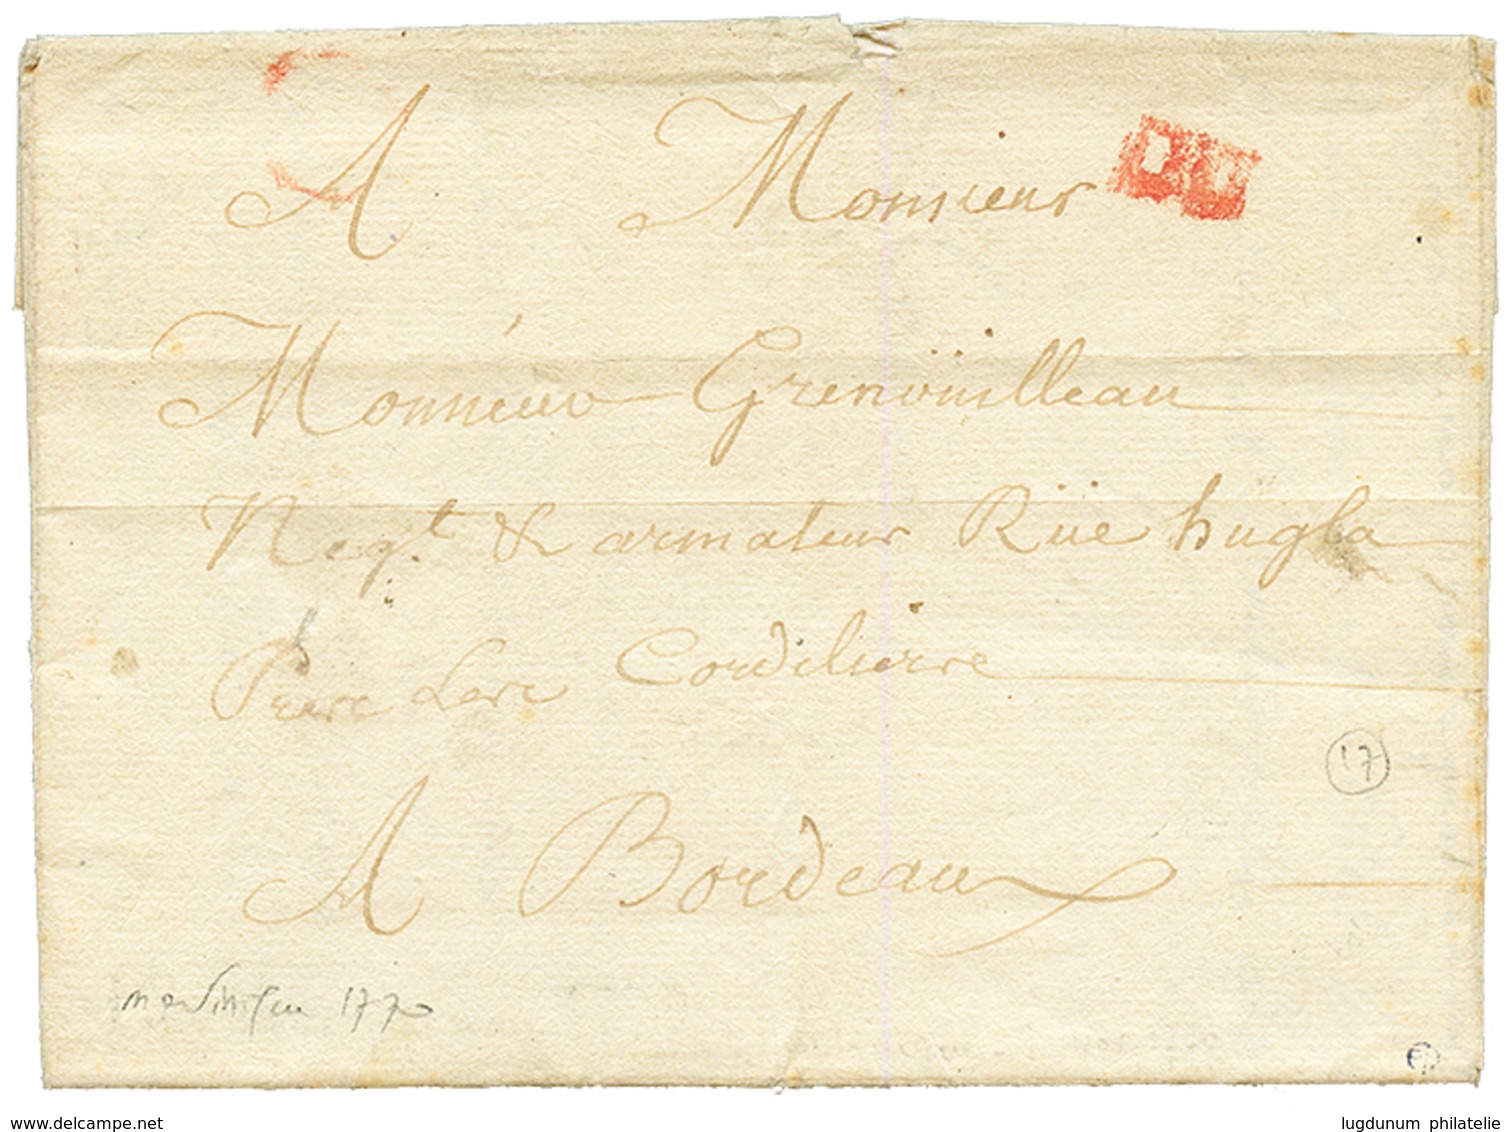 A Monsieur
Monsieur Grenoüilleau
Negt. & armateur Rüe hugla
A Bordeau
17
martinique 1770
delcampe.net
lugdunum philatelie